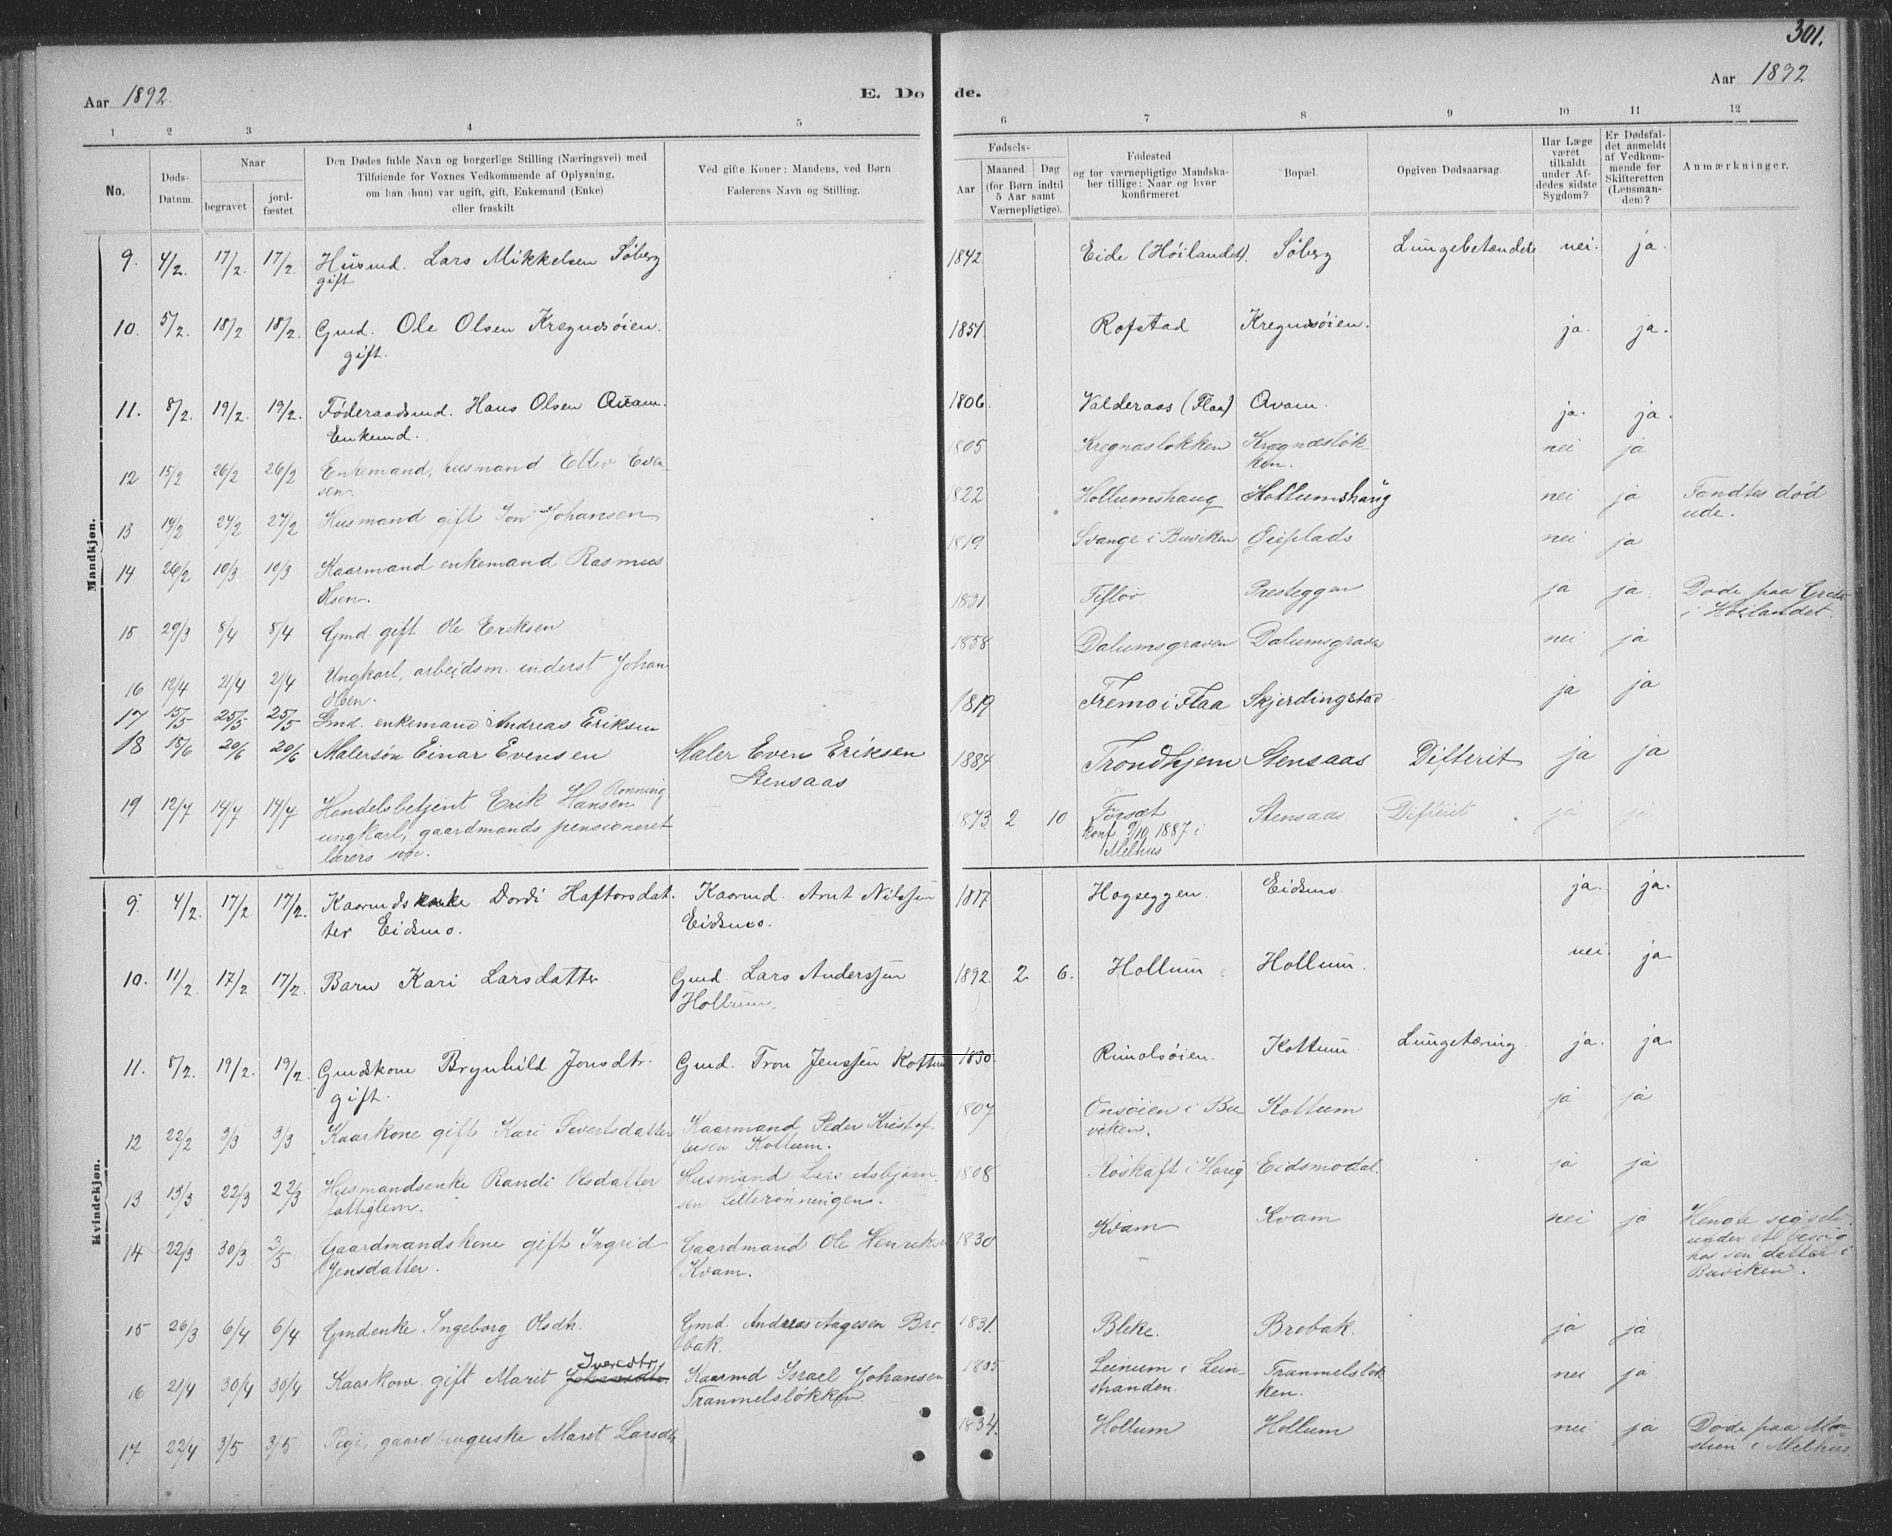 301.
Aar 1892.
E. Dø de.
Aar 1892
1 2 3 4 5 6 7 8 9 10 11 12
No.
Døds-
Datum.
Naar
begravet
jord-
fæstet
Den Dødes fulde Navn og borgerlige Stilling (Næringsvei) med
Tilføiende for Voxnes Vedkommende af Oplysning,
om han (hun) var ugift, gift, Enkemand (Enke)
eller fraskilt
Ved gifte Koner: Mandens, ved Børn
Faderens Navn og Stilling.
Fødsels-
Aar
Maaned Dag
(for Børn indtil
5 Aar samt
Værnepligtige).
Fødested
og for værnepligtige Mandska-
ber tillige: Naar og hvor
konfirmeret
Bopæl.
Opgiven Dødsaarsag.
Har Læge
været
tilkaldt
under Af-
dødes sidste
Sygdom?
Er Dødsfal-
det anmeldt
af Vedkom-
mende for
Skifteretten
(Lensman-
den)?
Anmærkninger.
Mandkjøn.
9. 4/2. 17/2. 17/2. Husmd. Lars Mikkelsen Søberg 1842. Eide (Høilandet). Søberg Lungebetændelse nei. ja.
gift
10. 5/2. 18/2. 18/2. Gmd. Ole Olsen Kregnæsøien. 1851. Rofstad Kregnæsøien. ja. ja.
gift.
11. 8/2. 19/2. 19/2. Føderaadsmd. Hans Olsen Qvam. 1806. Valderaas (Flaa) Qvam. ja. ja.
Enkemd.
12 15/2 26/2 26/2 Enkemand, husmand Ellev Even- 1805 Kregnæsløkken Kregnæsløk- nei ja
sen. ken.
13 19/2 27/2 27/2 Husmand gift Jon Johansen 1822 Hollumshaug Hollumshaug nei ja Fandtes død
ude.
14 26/2 10/3 10/3 Kaarmand enkemand Rasmus 1819 Svange i Buviken Øieplads nei ja
Olsen.
15 29/3 8/4 8/4 Gmd. gift Ole Eriksen 1831 Tiflov Presteggen ja ja. Døde paa
i Høilandet.
16 12/4 21/4 21/4 Ungkarl, arbeidsm. inderst Johan 1858 Dalumsgraven Dalumsgraven nei ja
Olsen.
17 15/5 25/5 25/5 Gmd. enkemand Andreas Eriksen 1819 Fremo i Flaa Skjerdingstad ja ja
18 18/6 20/6 20/6 Malersøn Einar Evensen Maler Even Eriksen 1884 Trondhjem Stensaas Difterit ja ja
Stensaas
19 12/7 14/7 14/7 Handelsbetjent Erik Hansen Rønning 1873 2 10 Forsæt Stensaas Difterit ja ja
ungkarl, gaardmands pensioneret konf 2/10 1887 i
lærers søn. Melhus
Kvindekjøn.
9. 4/2. 17/2. 17/2. Kaarmdsenke Dordi Haftorsdat- Kaarmd. Arnt Nilssen 1817 Hogseggen. Eidsmo. ja. ja.
ter Eidsmo. Eidsmo.
10. 11/2. 17/2 17/2. Barn Kari Larsdatter Gmd. Lars Anderssen 1892. 2 6. Hollum Hollum. nei. ja.
Hollum.
11. 8/2. 19/2. 19/2. Gmdskone Brynhild Jonsdtr. Gmd. Tron Jenssen Kottum 1830. Rimolsøien. Kottum Lungetæring. ja. ja.
gift.
12 22/2 3/3 3/3 Kaarkone gift Kari Sivertsdatter Kaarmand Peder Kristof- 1807 Onsøien i Bu- Kottum ja ja
fersen Kottum. viken.
13 13/3 22/3 22/3 Husmandsenke Randi Olsdatter Husmand Lars Asbjørn- 1808 Røskaft i Hørig Eidsmodal. ja ja
fattiglem. sen Lillerønningen.
14 22/3 30/3 3/5 Gaardmandskone gift Ingrid Gaardmand Ole Henriksen 1830 Kvam Kvam nei ja Hengte sig selv
Jensdatter. Kvam. under et besøg
hos sin datter i
Buviken.
15 26/3 6/4 6/4 Gmdenke Ingeborg Olsdtr. Gmd. Andreas Aagesen Bro- 1831. Bleke. Brobak. ja ja
bak.
16 21/4 30/4 30/4 Kaarkone gift Marit Iversdtr. Kaarmd Israel Johansen 1805 Leinum i Lein- Trammelsløk- nei ja.
Trammelsløkken. stranden. ken.
17 22/4 3/5 3/5 Pige, gaardbrugerske Maret Larsdtr 1834. Hollum Hollum nei ja Døde paa Mo-
stien i Melhus